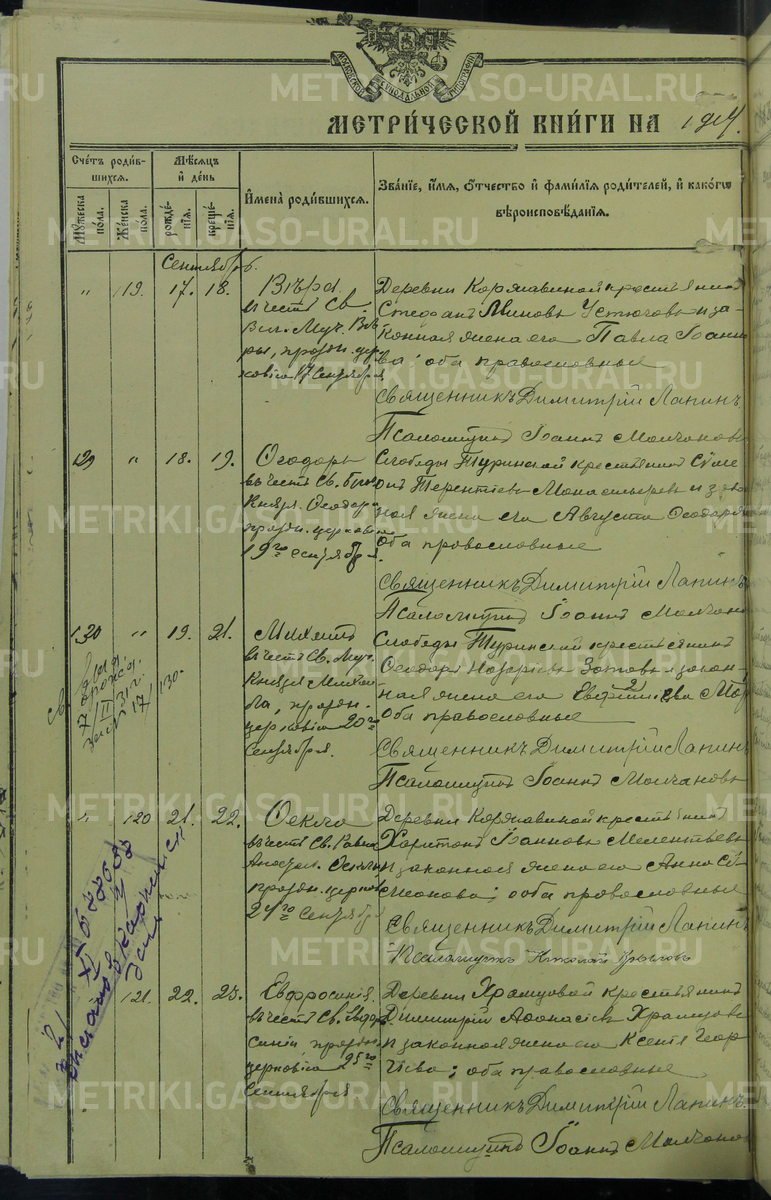 МОСКОВСКОЙ СѴНОДАЛЬНОЙ ТИПОГРАФІИ
METRIKI.GASO-URAL.RU
МЕТРИ́ЧЕСКОЙ КНИ́ГИ НА 1914.
Сче́тъ роди́вшихся.
Му́жеска по́ла.
Же́нска по́ла.
Мѣ́сяцъ и҆ де́нь
рожде́нїѧ.
креще́нїѧ.
И҆мена̀ роди́вшихся.
Зва́нїе, и҆́мѧ, ѻ҆́тчество и҆ фами́лїѧ роди́телей, и҆ како́гѡ
вѣроисповѣ́данїѧ.
Сентябрь.
" 119. 17. 18.
Вѣра
въ честь Св.
Вел. Муч. Вѣ
ры, праздн. цер
ковію 17 Сентября
Деревни Коржавиной крестьянинъ
Стефанъ Устюговъ и за
конная жена его Павла Іоанно
ва; оба православные
Священникъ Димитрій Лапинъ
Псаломщикъ Іоаннъ Молчановъ
129 " 18. 19.
Ѳеодоръ
въ честь Св. благ.
Князя Ѳеодора
праздн. церковію
19го Сентября
Слободы Туринской крестьянинъ Сѵме
онъ Терентіевъ и закон
ная жена его Августа Ѳеодорова
оба православные
Священникъ Димитрій Лапинъ
Псаломщикъ Іоаннъ Молчановъ
130 " 19. 21.
Михаилъ
въ честь Св. Муч.
Князя Михаи
ла, праздн.
церковію 20го
Сентября.
Слободы Туринской крестьянинъ
Ѳеодоръ Назаріевъ Зотовъ и закон
ная жена его
Оба православные
Священникъ Димитрій Лапинъ
Псаломщикъ Іоаннъ Молчановъ
" 120 21. 22.
Ѳекла
въ честь Св. Равно
Апостол. Ѳеклы
праздн. церков
24го Сентября
Деревни Коржавиной крестьянинъ
Харитонъ Іоанновъ Мелентьевъ
и законная жена его Анна Сѵ
меонова; оба православные
Священникъ Димитрій Лапинъ
Псаломщикъ Николай
121. 22. 23.
Евфросинія
въ честь Св. Евфро
синіи праздн.
церковію 25го
Сентября
Деревни Храмцовой крестьянинъ
Димитрій Аѳонасіевъ Храмцовъ
и законная жена его Ксенія Геор
гіева; оба православные
Священникъ Димитрій Лапинъ.
Псаломщикъ Іоаннъ Молчановъ